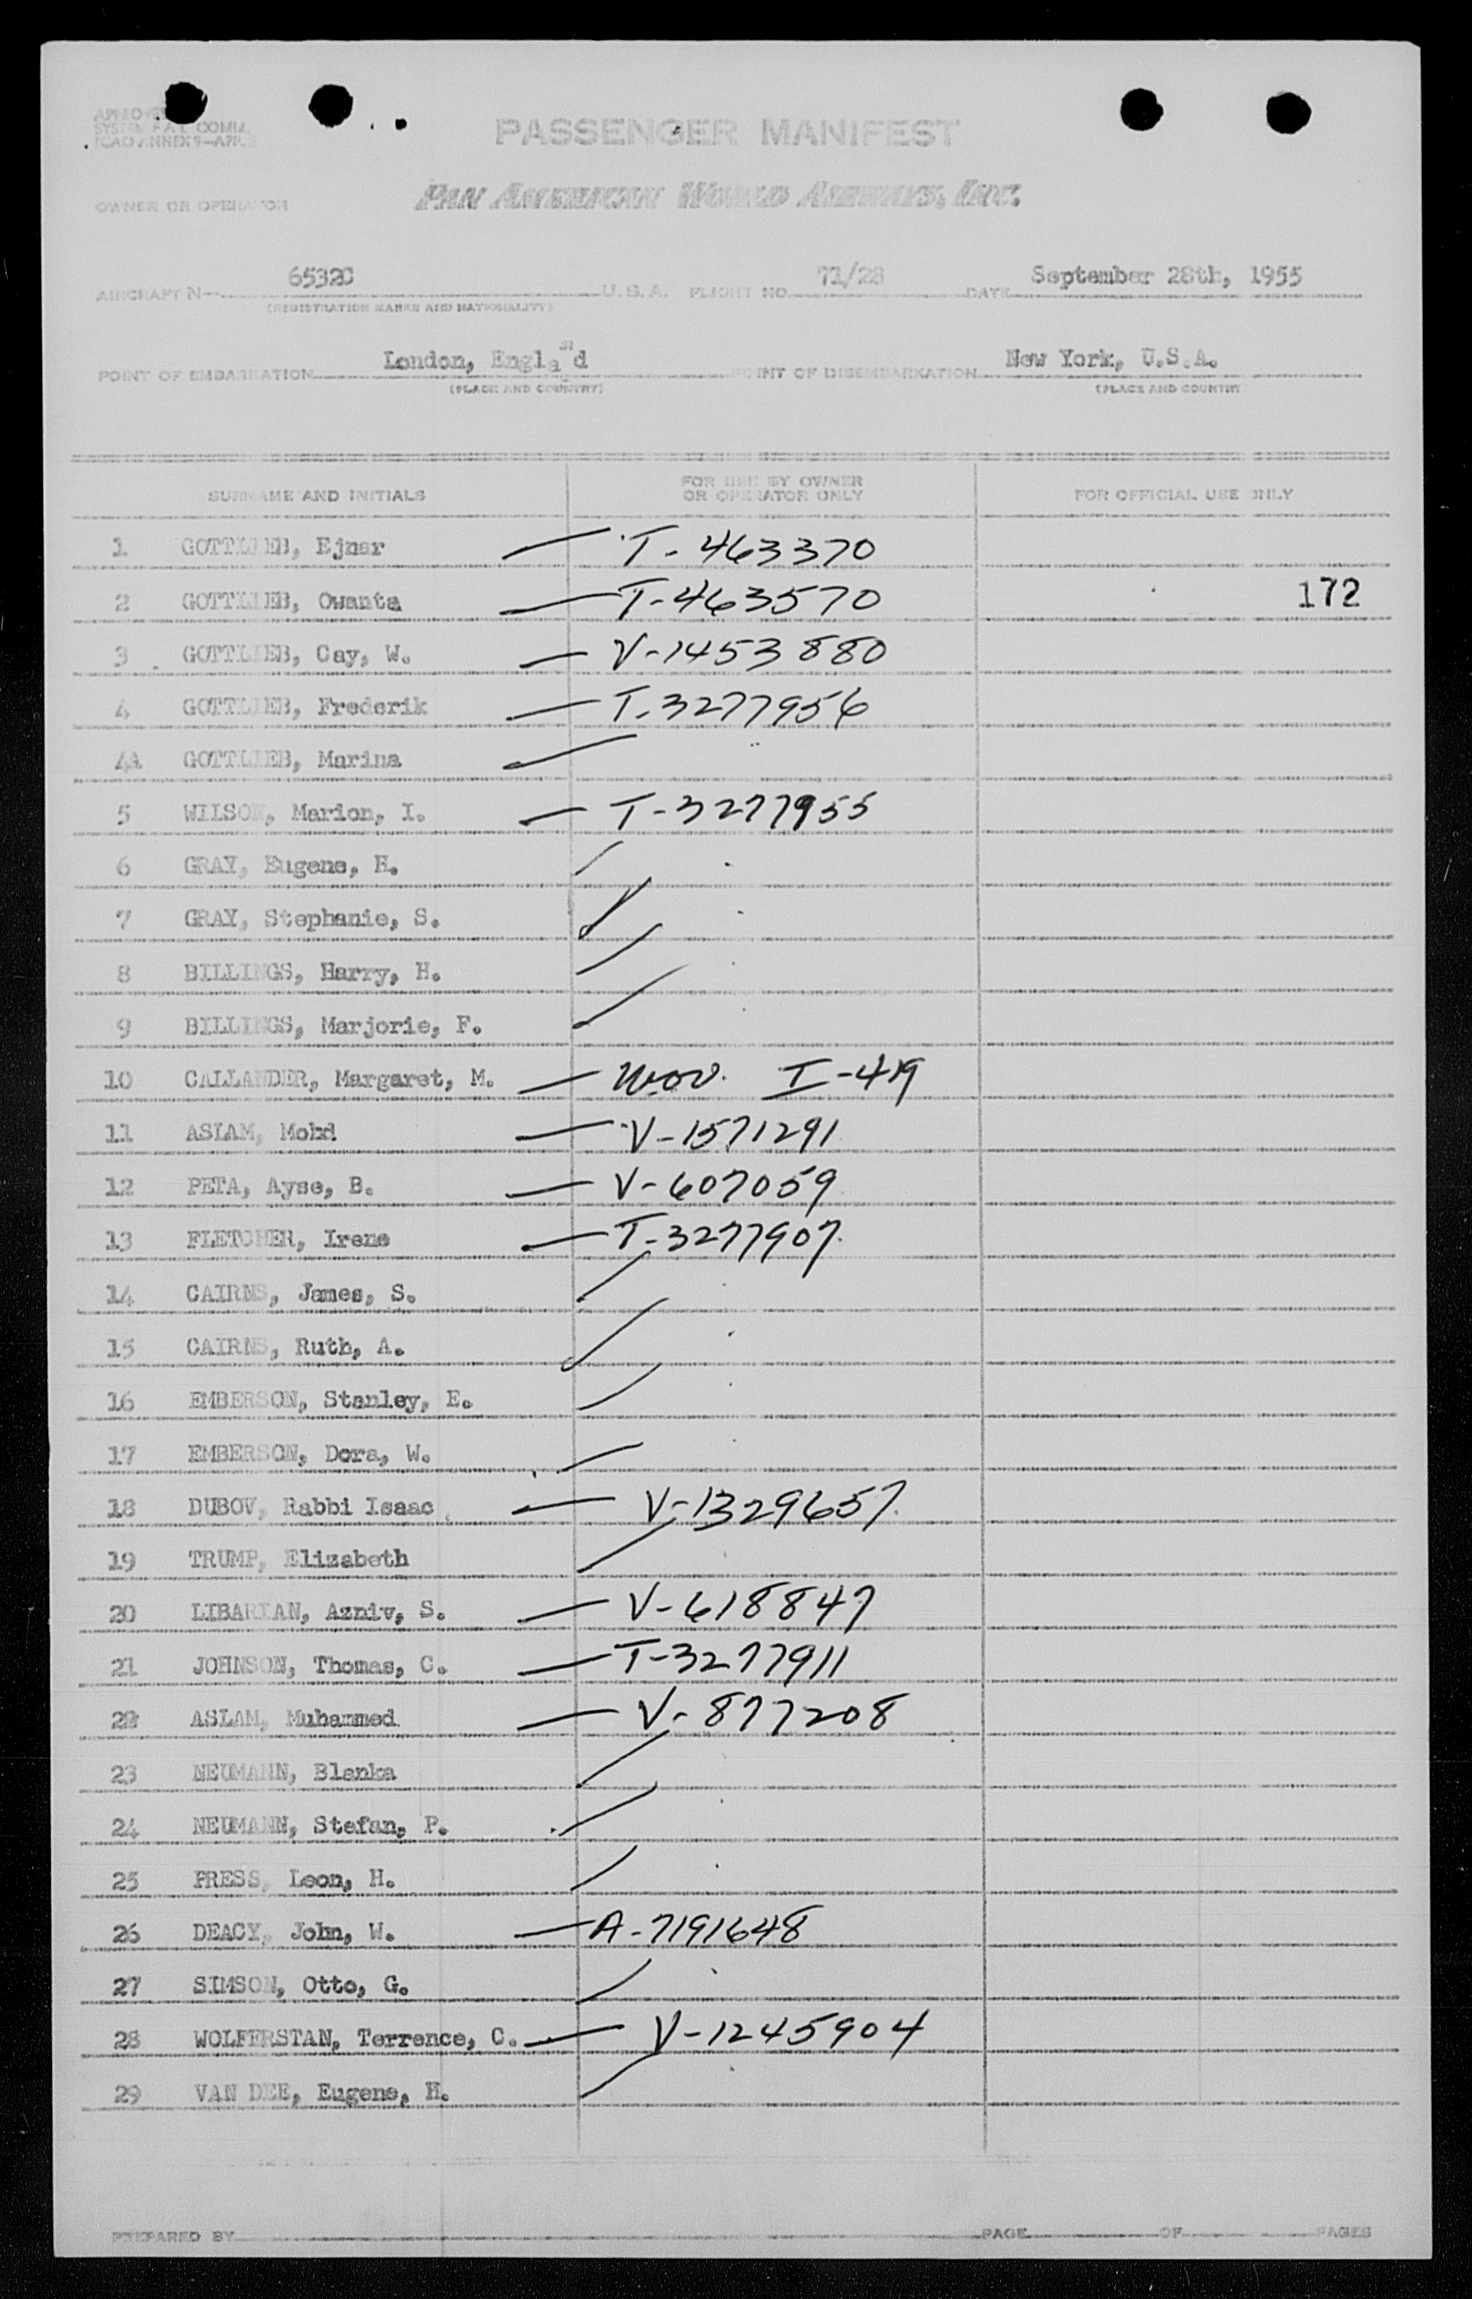 APPROVED
SYSTEM F A L COMM.
ICAO ANNEX 9—APR.
PASSENGER MANIFEST
OWNER OR OPERATOR
PAN AMERICAN WORLD AIRWAYS, INC.
AIRCRAFT N— 6532C U.S.A. FLIGHT NO. 71/28 DATE September 28th, 1955
(REGISTRATION MARKS AND NATIONALITY)
POINT OF EMBARKATION London, England POINT OF DISEMBARKATION New York, U.S.A.
(PLACE AND COUNTRY) (PLACE AND COUNTRY)
SURNAME AND INITIALS FOR USE BY OWNER OR OPERATOR ONLY FOR OFFICIAL USE ONLY
1 GOTTLIEB, Ejnar — T-463370
2 GOTTLIEB, Owanta — T-463570 172
3 GOTTLIEB, Cay, W. — V-1453880
4 GOTTLIEB, Frederik — T-3277956
4A GOTTLIEB, Marina
5 WILSON, Marion, I. — T-3277955
6 GRAY, Eugene, H.
7 GRAY, Stephanie, S.
8 BILLINGS, Harry, H.
9 BILLINGS, Marjorie, F.
10 CALLANDER, Margaret, M. — I-419
11 ASLAM, Mohd — V-1571291
12 PETA, Ayse, B. — V-607059
13 FLETCHER, Irene — T-3277907
14 CAIRNS, James, S.
15 CAIRNS, Ruth, A.
16 EMBERSON, Stanley, E.
17 EMBERSON, Dora, W.
18 DUBOV, Rabbi Isaac — V-1329657
19 TRUMP, Elizabeth
20 LIBARIAN, Azniv, S. — V-618847
21 JOHNSON, Thomas, C. — T-3277911
22 ASLAM, Muhammed — V-877208
23 NEUMANN, Blanka
24 NEUMANN, Stefan, P.
25 PRESS, Leon, H.
26 DEACY, John, W. — A-7191648
27 SIMSON, Otto, G.
28 WOLFERSTAN, Terrence, C. — V-1245904
29 VAN DEE, Eugene, H.
PREPARED BY PAGE OF PAGES